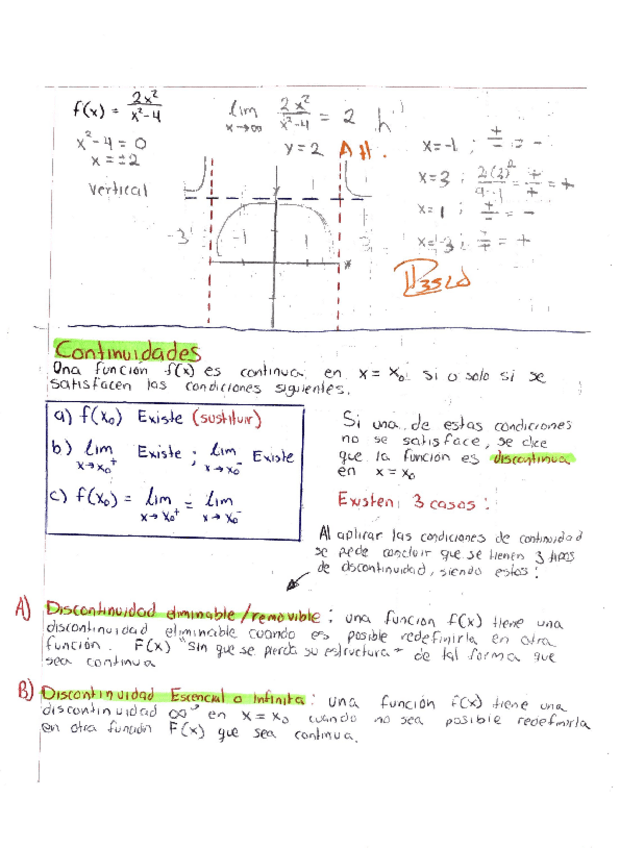 f(x) = 2x²/x²-4
lim x→∞ 2x²/x²-4 = 2 h
x²-4 = 0
x = ±2
y = 2 A H.
Vertical
x=-1 ; +/- = -
x=3 ; 2(3)²/9-4 = +/+ = +
x=1 ; +/- = -
x=-3 ; +/+ = +
y
-3 -1 1 3
x
Continuidades
Una función f(x) es continua en x = x₀ si o solo si se
satisfacen las condiciones siguientes.
a) f(x₀) Existe (sustituir)
b) lim x→x₀⁺ Existe ; lim x→x₀⁻ Existe
c) f(x₀) = lim x→x₀⁺ = lim x→x₀⁻
Si una de estas condiciones
no se satisface, se dice
que la función es discontinua
en x = x₀
Existen 3 casos :
Al aplicar las condiciones de continuidad
se pede concluir que se tienen 3 tipos
de discontinuidad, siendo estos :
A) Discontinuidad elminable/removible : una funcion f(x) tiene una
discontinuidad eliminable cuando es posible redefinirla en otra
función. F(x) "sin que se pierda su estructura" de tal forma que
sea continua
B) Discontinuidad Escencial o Infinita : una función f(x) tiene una
discontinuidad ∞ en x = x₀ cuando no sea posible redefinirla
en otra función F(x) que sea continua.